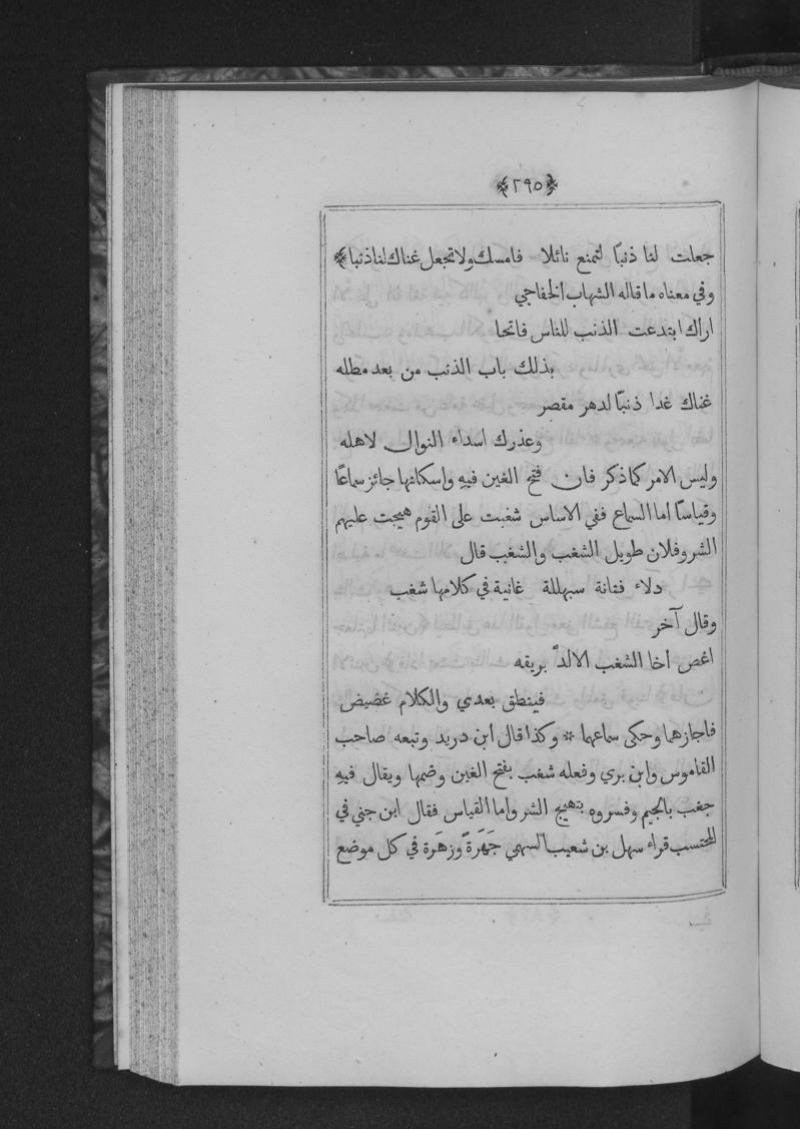 ﴿٢٩٥﴾
جعلت لنا ذنبًا لتمنع نائلا فامسك ولا تجعل غناك لنا ذنبا ﴾
وفي معناه ما قاله الشهاب الخفاجي
اراك ابتدعت الذنب للناس فاتحا
بذلك باب الذنب من بعد مطله
غناك غدا ذنبًا لدهر مقصر
وعذرك اسداء النوال لاهله
وليس الامر كما ذكر فان فتح الغين فيه واسكانها جائز سماعًا
وقياسًا اما السماع ففي الاساس شغبت على القوم هيجت عليهم
الشر وفلان طويل الشغب والشغب قال
دلاء فتانة سبهللة غانية في كلامها شغب
وقال آخر
اغص اخا الشغب الالدّ بريقه
فينطق بعدي والكلام غضيض
فاجازهما وحكى سماعهما * وكذا قال ابن دريد وتبعه صاحب
القاموس وابن بري وفعله شغب بفتح الغين وضمها ويقال فيه
جغب بالجيم وفسروه بتهيج الشر واما القياس فقال ابن جني في
المحتسب قراء سهل بن شعيب السهمي جَهَرَةً وزهَرة في كل موضع